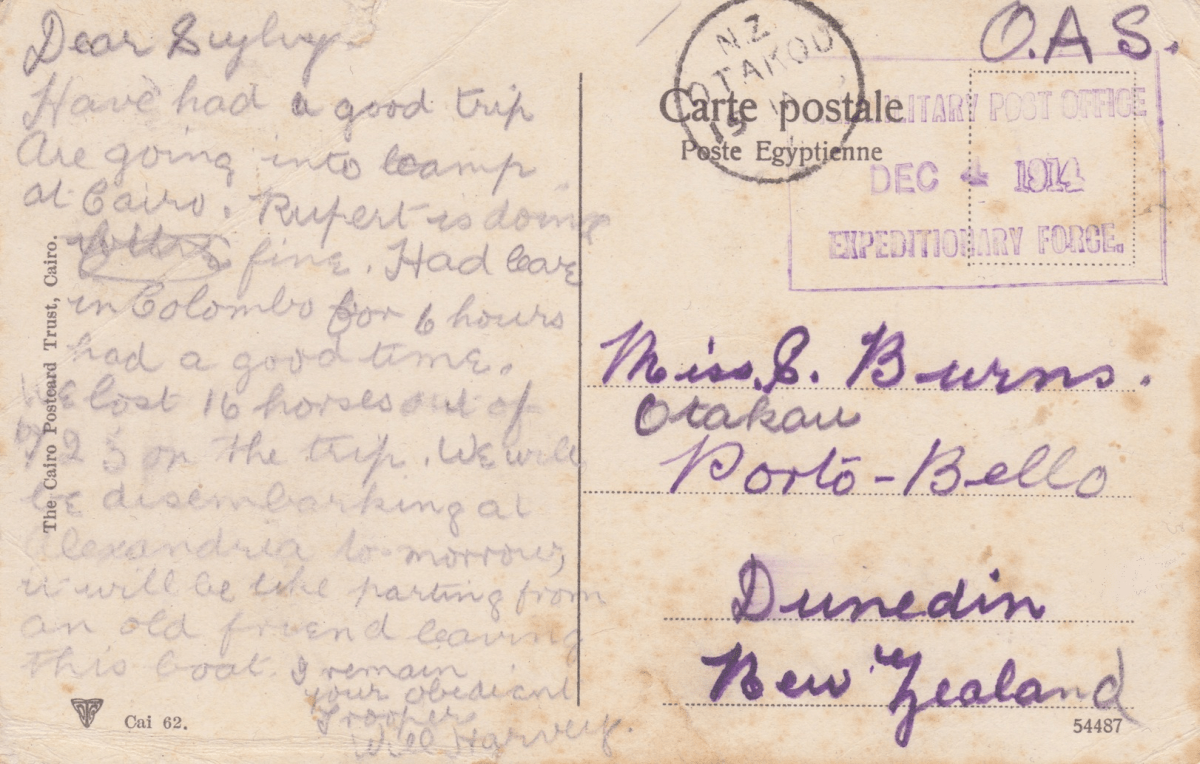 Dear
Have had a good trip
Are going into camp
at Cairo. Rupert is doing
fine. Had leave
in Colombo for 6 hours
had a good time.
We lost 16 horses out of
723 on the trip. We will
be disembarking at
Alexandria to morrow,
it will be like parting from
an old friend leaving
this boat I remain
your obedient
Trooper
Will Harvey.
The Cairo Postcard Trust, Cairo.
Cai 62.
N.Z
OTAKOU
O.A.S.
Carte postale
Poste Egyptienne
MILITARY POST OFFICE
DEC 4 1914
EXPEDITIONARY FORCE.
Miss. S. Burns.
Otakau
Porto-Bello
Dunedin
New Zealand
54487